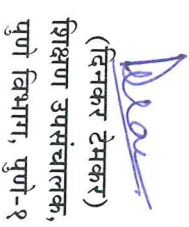 (दिनकर टेमकर)
शिक्षण उपसंचालक,
पुणे विभाग, पुणे-१